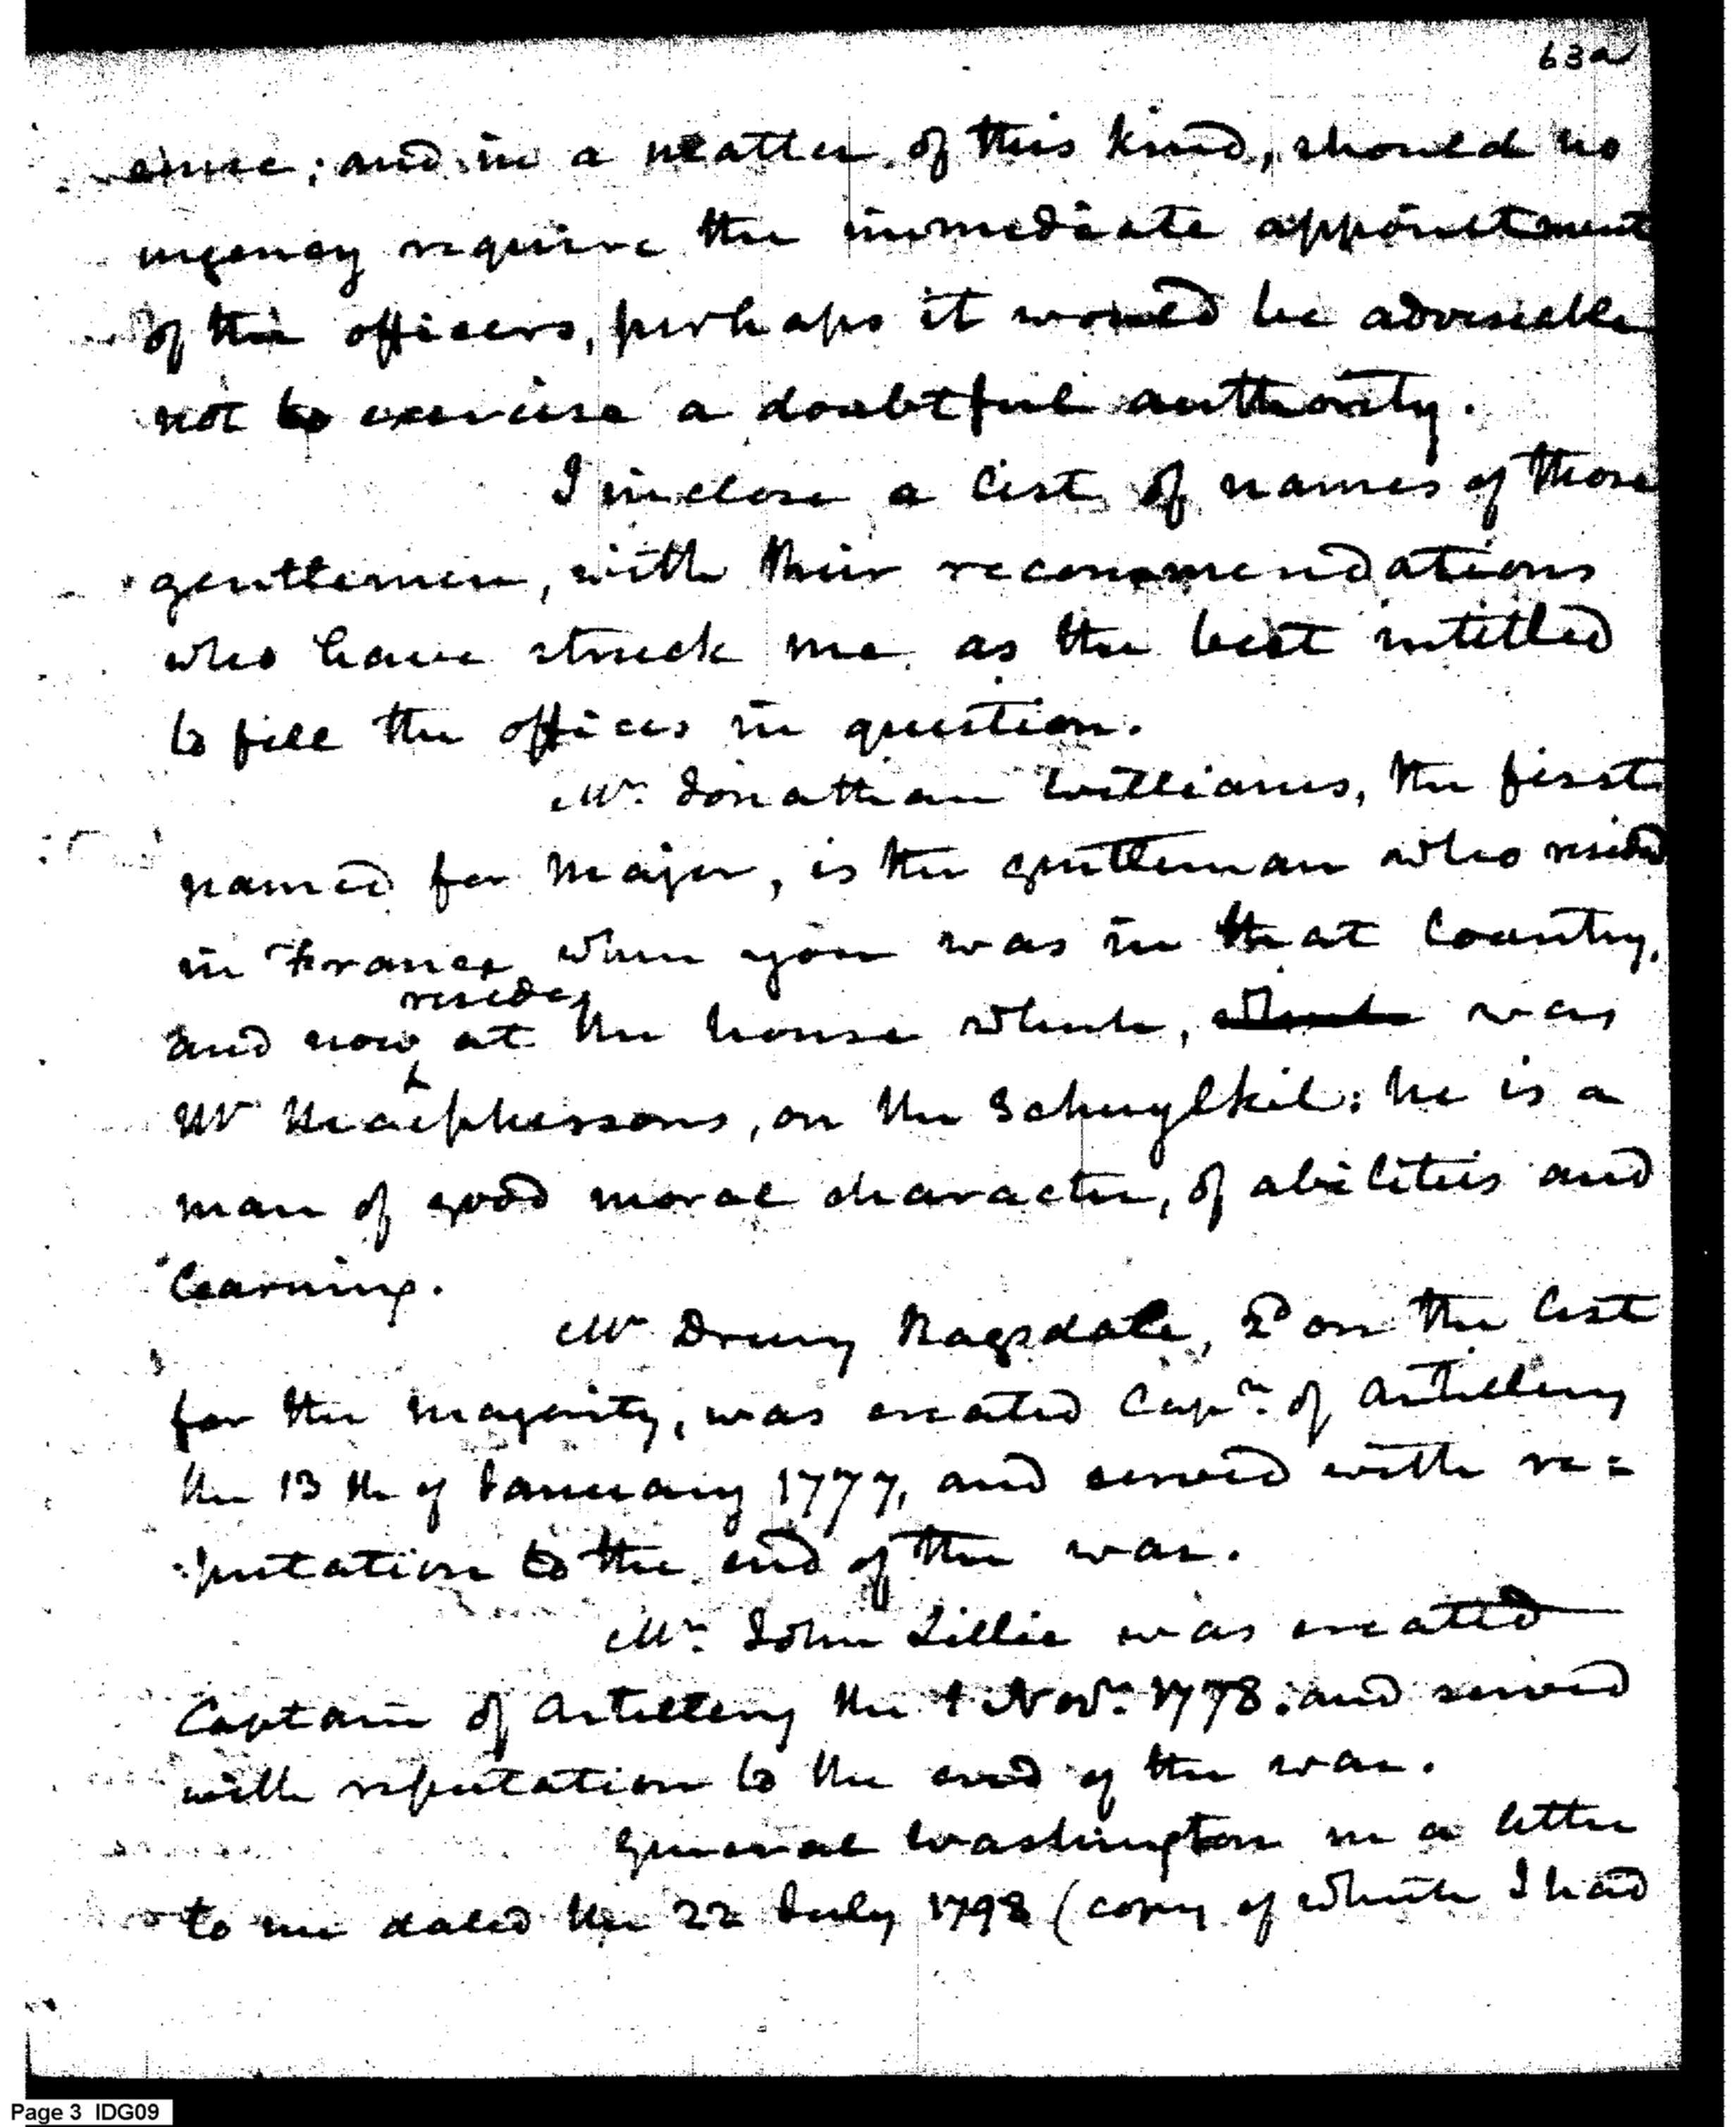 63a
sence; and in a matter of this kind, should no
urgency require the immediate appointment
of the officers, perhaps it would be adviseable
not to exercise a doubtful authority.
I inclose a list of names of those
gentlemen, with their recommendations
who have struck me as the best intitled
to fill the offices in question.
Mr. Jonathan Williams, the first
named for Major, is the gentleman who resided
in France when you was in that Country,
resides
and now at the house which, which was
Mr Macphersons, on the Schuylkil: he is a
man of good moral character, of abilities and
learning.
Mr Drury Ragsdale, 2d on the list
for the majority, was created Capn. of Artillery
the 13th of January 1777, and served with re=
putation to the end of the war.
Mr. John Lillie was created
Captain of Artillery the 1 Novr. 1778: and served
with reputation to the end of the war.
General Washington in a letter
to me dated the 22 July 1798 (copy of which I had
Page 3 IDG09